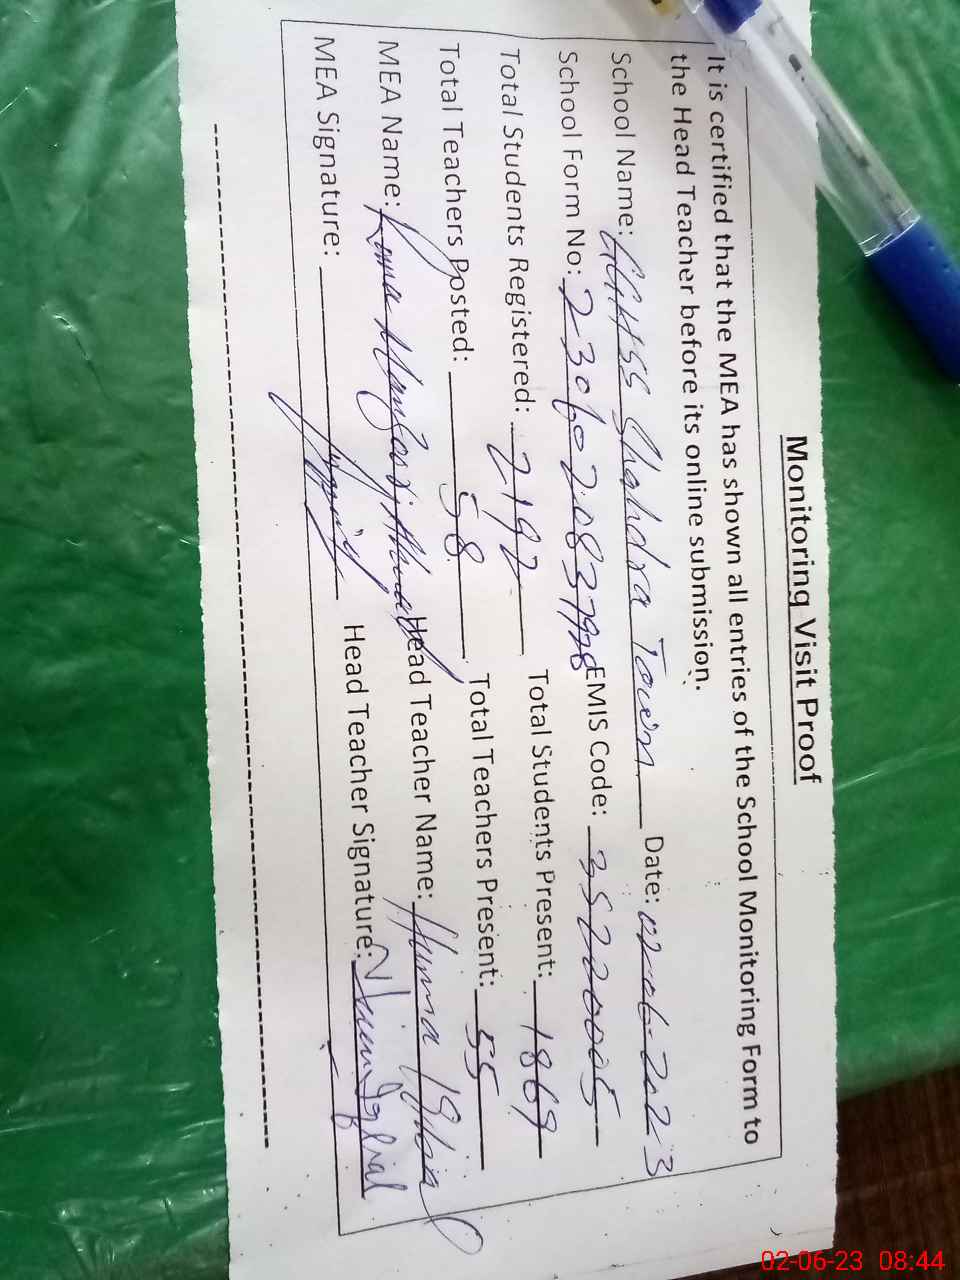 Monitoring Visit Proof
It is certified that the MEA has shown all entries of the School Monitoring Form to
the Head Teacher before its online submission.
School Name: GGHSS Shahdra Town Date: 02-06-2023
School Form No: EMIS Code: 35220005
Total Students Registered: 2192 Total Students Present: 1869
Total Teachers Posted: 58 Total Teachers Present: 55
MEA Name: Head Teacher Name: Huma Iqbal
MEA Signature: Head Teacher Signature:
02-06-23 08:44